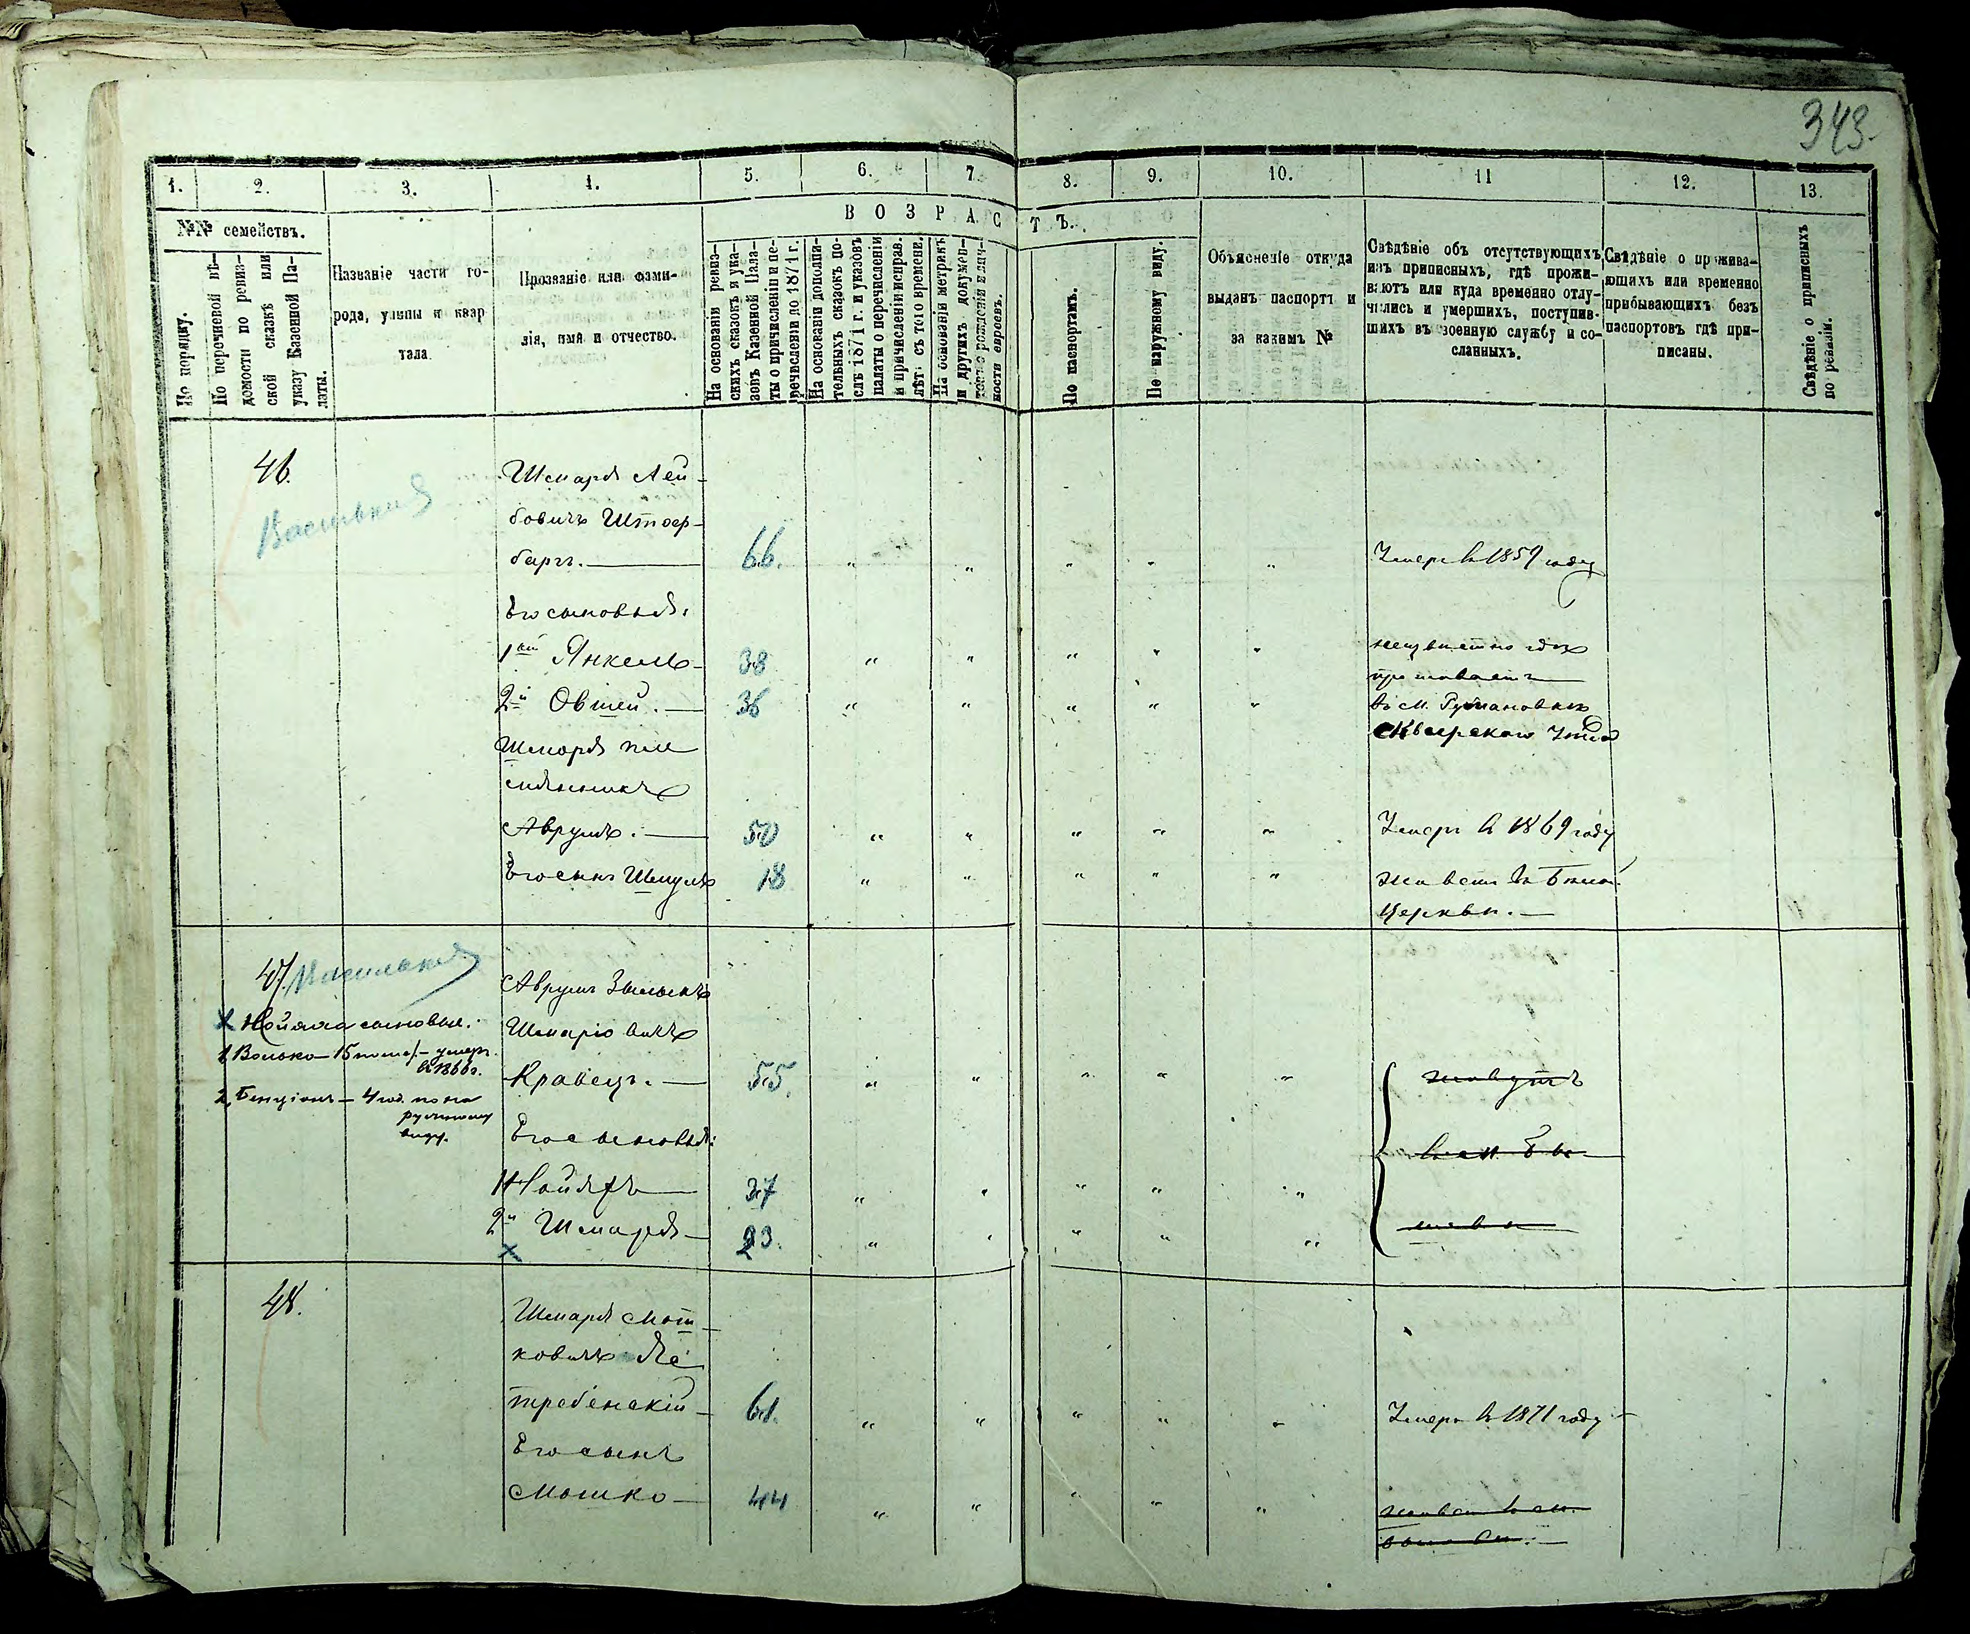 343.
1. 2. 3. 4. 5. 6. 7. 8. 9. 10. 11 12. 13.
№№ семействъ.
По порядку.
По перечневой вѣ-
домости по ревиз-
ской сказкѣ или
указу Казенной Па-
латы.
Названіе части го-
рода, улицы и квар
тала.
Прозваніе или фами-
лія, имя и отчество.
ВОЗРАСТЪ.
На основаніи ревиз-
скихъ сказокъ и ука-
зовъ Казенной Пала-
ты о причисленіи и пе-
речисленіи до 1871 г.
На основаніи дополни-
тельныхъ сказокъ по-
слѣ 1871 г. и указовъ
палаты о перечисленіи
и причисленіи исправ.
лѣтъ съ того времени.
На основаніи метрикъ
и другихъ докумен-
товъ о рожденіи и лич-
ности евреевъ.
По паспортамъ.
По наружному виду.
Объясненіе откуда
выданъ паспортъ и
за какимъ №
Свѣдѣніе объ отсутствующихъ
изъ приписныхъ, гдѣ прожи-
ваютъ или куда временно отлу-
чились и умершихъ, поступив-
шихъ въ военную службу и со-
сланныхъ.
Свѣдѣніе о прожива-
ющихъ или временно
прибывающихъ безъ
паспортовъ гдѣ при-
писаны.
Свѣдѣніе о приписныхъ
по ревизіи.
46.
Шмаря Лей-
бовичъ Штоер-
баргъ. 66. Умеръ в 1859 году
Его сыновья:
1ый Янкель 38 неизвѣстно гдѣ
проживаетъ
2й Овшей. 36 въ м. Ружановкѣ
Сквирскаго Уѣзда
Шмаря пле
мянникъ
Аврумъ. 50 Умеръ в 1869 году
Его сынъ Шмуль 18 живетъ въ Бѣлой
Церкви.
47. Васильковъ
Аврумъ Зельикъ
Х Нойаха сыновья:
Шмаріовичъ
1, Волько — 15 — умеръ
в 1866 г.
Кравецъ. 55. живутъ
2, Бенціонъ — 4 год. по на
ружному
виду.
Его сыновья:
27
2й Шмаря 23.
Х
48.
Шмаря Мош-
ковичъ Яс
требенскій 61. Умеръ в 1871 году
Его сынъ
Мошко 44